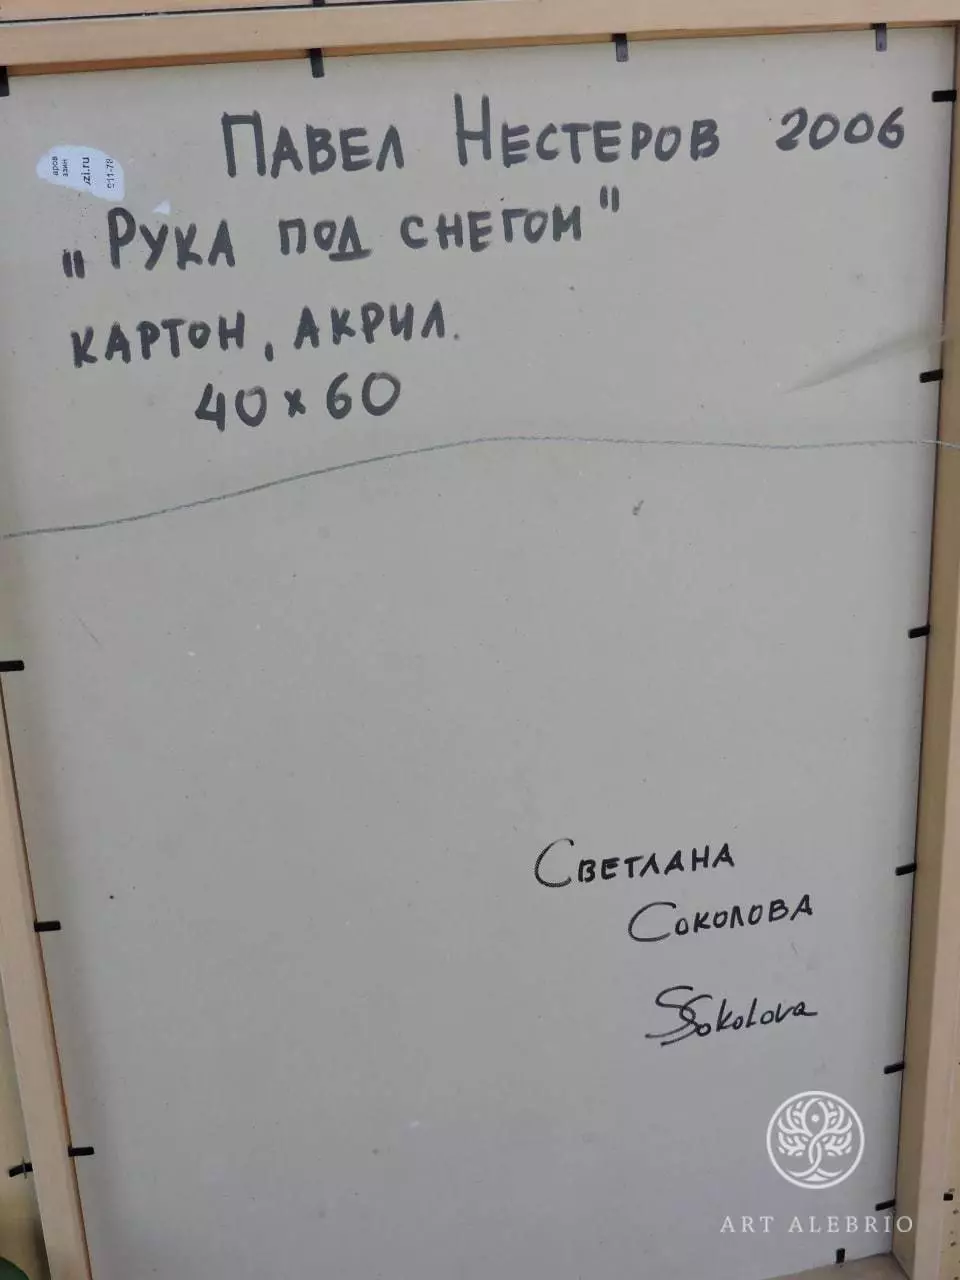 ПАВЕЛ НЕСТЕРОВ 2006
„РУКА ПОД СНЕГОМ"
КАРТОН, АКРИЛ.
40 x 60
СВЕТЛАНА
СОКОЛОВА
SSokolova
ART ALEBRIO